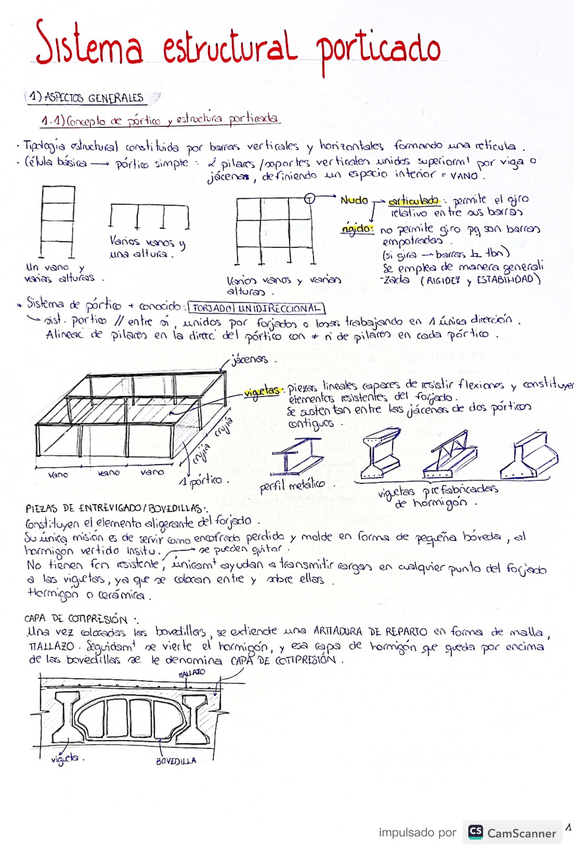 Sistema estructural porticado
1) ASPECTOS GENERALES
1.1) Concepto de pórtico y estructura porticada
· Tipología estructural constituida por barras verticales y horizontales formando una retícula.
· Célula básica → pórtico simple: 2 pilares/soportes verticales unidos superiorm¹ por viga o
jácenas, definiendo un espacio interior = VANO.
Un vano y
varias alturas.
Varios vanos y
una altura.
Varios vanos y varias
alturas.
Nudo
articulado: permite el giro
relativo entre sus barras
rígido: no permite giro pq son barras
empotradas.
(si gira → barras tbn)
Se emplea de manera generali
-zada (RIGIDEZ y ESTABILIDAD)
Sistema de pórtico + conocido: FORJADO UNIDIRECCIONAL
sist. pórtico // entre sí, unidos por forjados o losas trabajando en 1 única dirección.
Alineac. de pilares en la direcc. del pórtico con ≠ nº de pilares en cada pórtico.
jácenas.
viguetas: piezas lineales capaces de resistir flexiones y constituyen
elementos resistentes del forjado.
Se sustentan entre las jácenas de dos pórticos
contiguos.
vano vano vano
crujía crujía
1 pórtico.
perfil metálico.
viguetas prefabricadas
de hormigón.
PIEZAS DE ENTREVIGADO/BOVEDILLAS:
Constituyen el elemento aligerante del forjado.
Su única misión es de servir como encofrado perdido y molde en forma de pequeña bóveda, al
hormigón vertido insitu. → se pueden quitar.
No tienen fcn resistente, únicam¹ ayudan a transmitir cargas en cualquier punto del forjado
a las viguetas, ya que se colocan entre y sobre ellas.
Hormigón o cerámica.
CAPA DE COMPRESIÓN:
Una vez colocadas las bovedillas, se extiende una ARMADURA DE REPARTO en forma de malla,
MALLAZO. Seguidam¹ se vierte el hormigón, y esa capa de hormigón que queda por encima
de las bovedillas se le denomina CAPA DE COMPRESIÓN.
MALLAZO
vigueta.
BOVEDILLA
impulsado por CS CamScanner
1